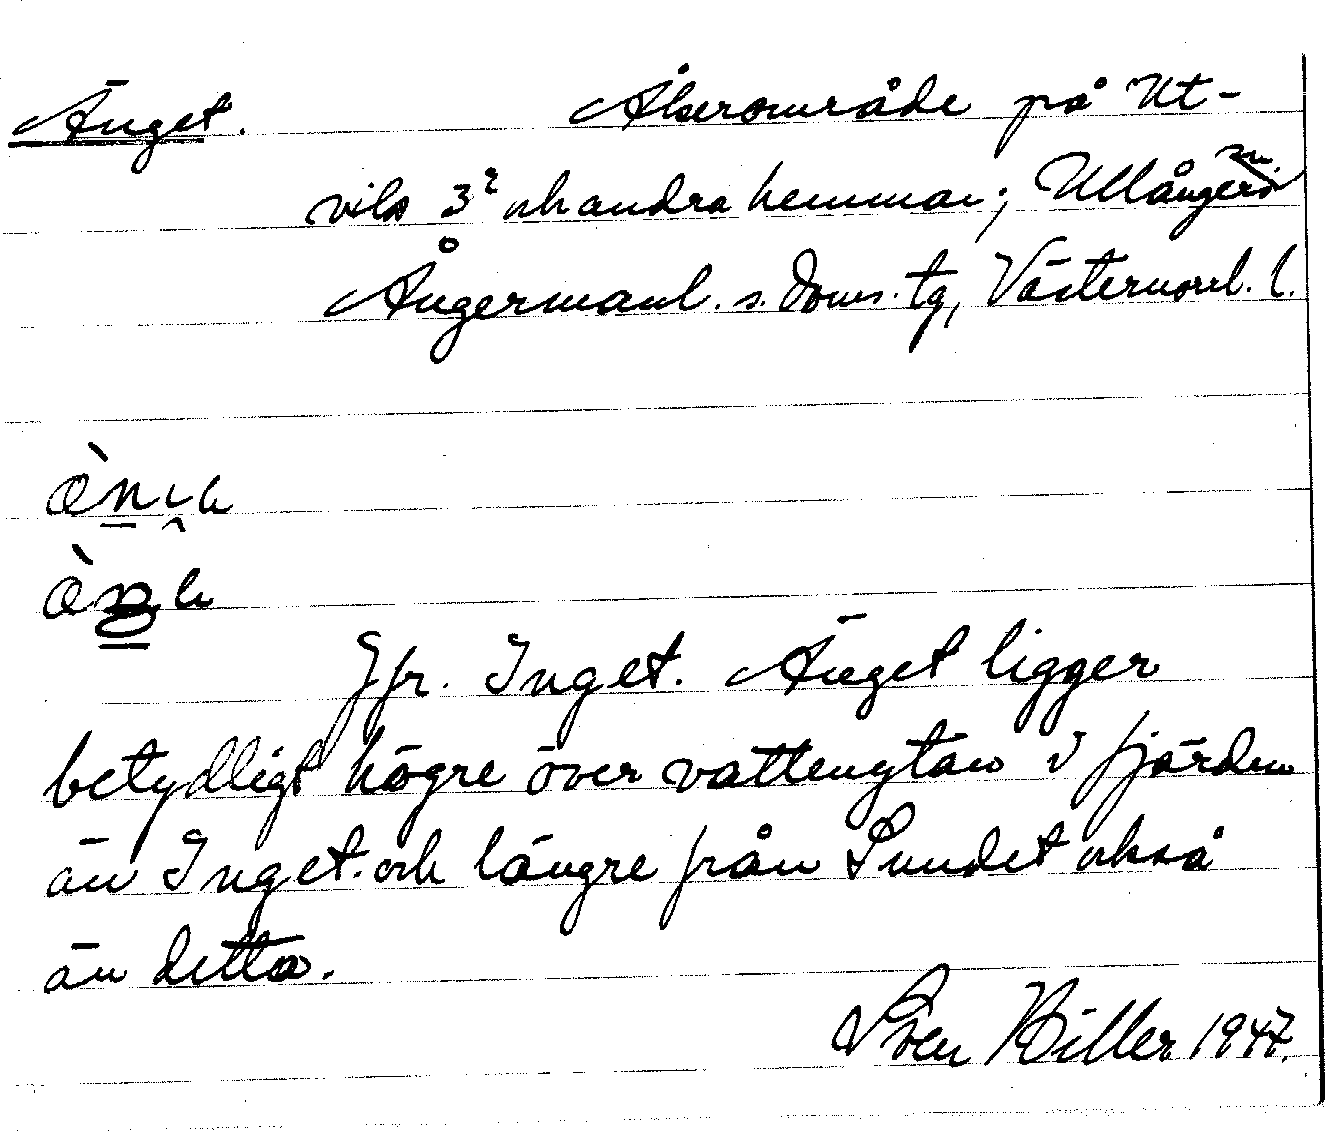 Änget. Åkerområde på Ut-
viks 3ᵉ och andra hemman; Ullångers sn.
Ångermanl. s. doms. tg, Västernorrl. l.
Jfr. Inget. Änget ligger
betydligt högre över vattenytan i fjärden
än Inget och längre från Sundet också
än detta.
Sven Hiller 1947.